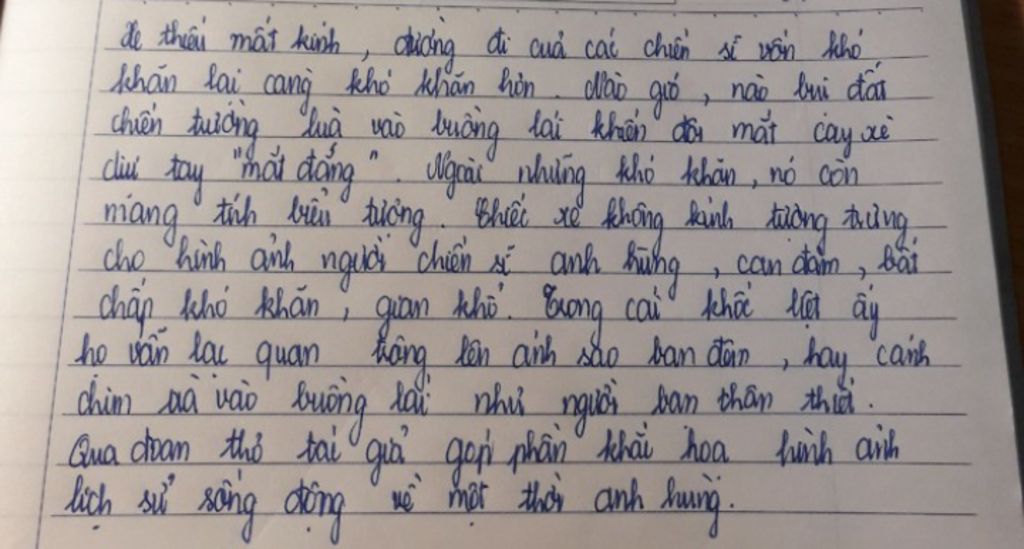 Xe thiếu mất kính, đường đi của các chiến sĩ vốn khó
khăn lại càng khó khăn hơn. Nào gió, nào bụi đất
chiến trường lùa vào buồng lái khiến đôi mắt cay xè
dịu tay "mắt đắng". Ngoài những khó khăn, nó còn
mang tính biểu tượng. Chiếc xe không kính tượng trưng
cho hình ảnh người chiến sĩ anh hùng, can đảm, bất
chấp khó khăn, gian khổ. Trong cái khốc liệt ấy
họ vẫn lạc quan trông lên ánh sao ban đêm, hay cánh
chim sà vào buồng lái như người bạn thân thiết.
Qua đoạn thơ tác giả góp phần khải hoạ hình ảnh
lịch sử sống động về một thời anh hùng.